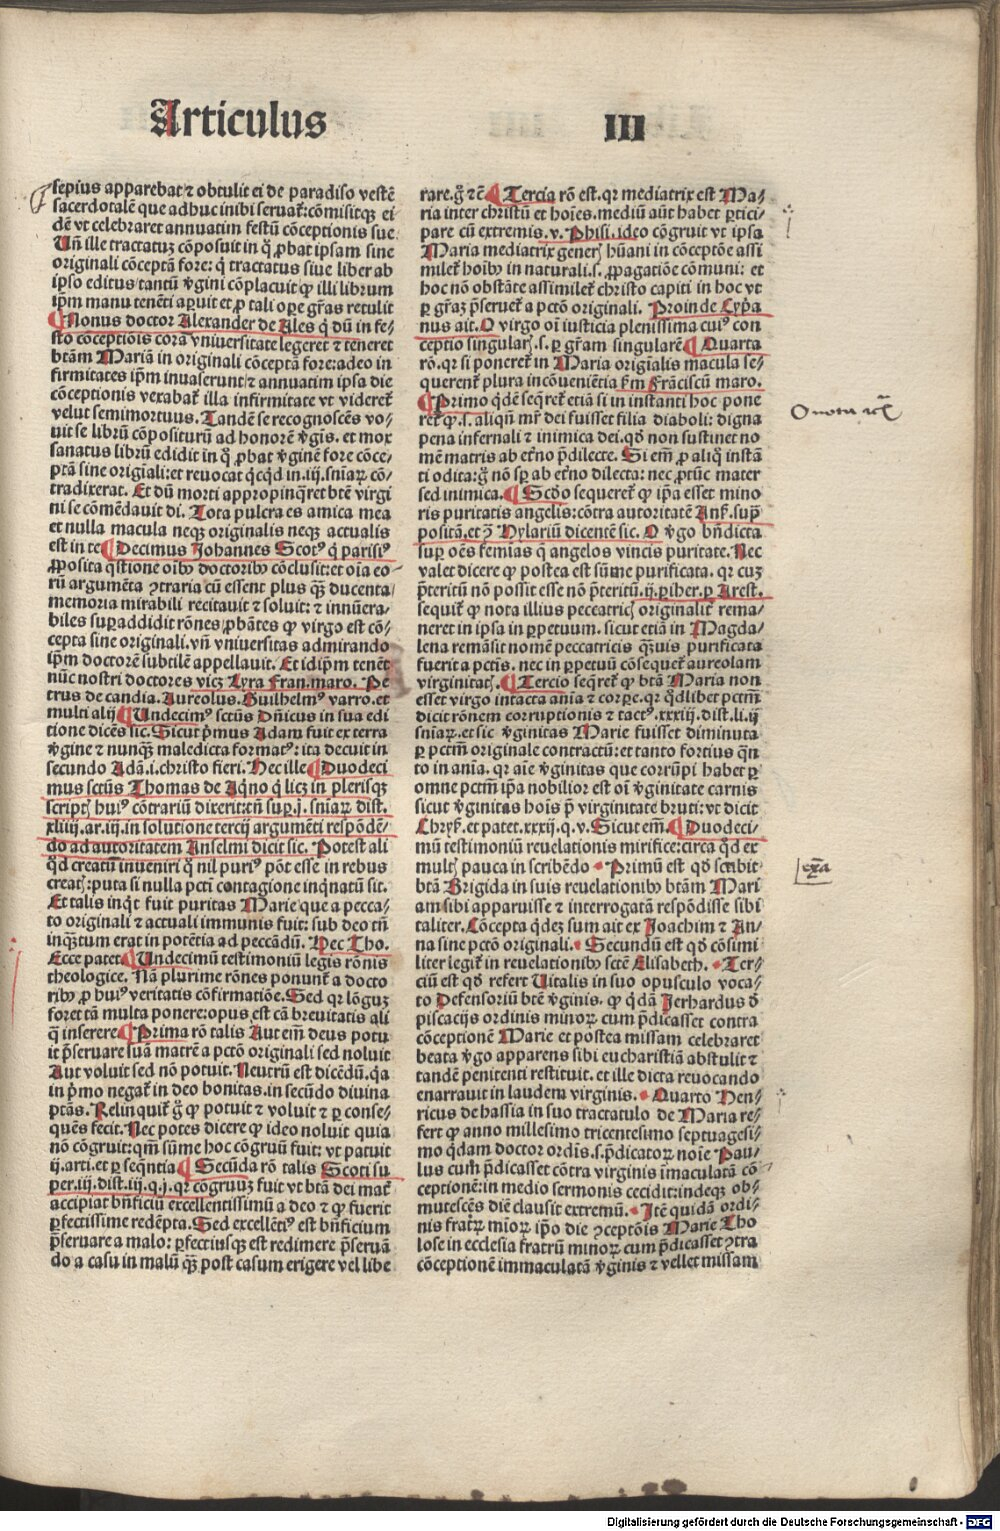 Articulus III
sepius apparebat ⁊ obtulit ei de paradiso vestē
sacerdotalē que adhuc inibi seruat̄: cōmisitqꝫ ei⸗
dē vt celebraret annuatim festū cōceptionis sue
Vn̄ ille tractatuꝫ cōposuit in q̊ ꝓbat ipsam sine
originali cōceptā fore: q̇ tractatus siue liber ab
ipso editus/ tantū v̄gini cōplacuit ꝙ illi librum
ip̄m manu tenēti aꝑuit et ꝓ tali oꝑe gr̄as retulit
¶ Nonus doctor Alexander de Ales q̇ dū in fe⸗
sto cōceptiōis corā vniuersitate legeret ⁊ teneret
btām Mariā in originali cōceptā fore: adeo in
firmitates ip̄m inuaserunt: ⁊ annuatim ipsa die
cōceptionis vexabat̄ illa infirmitate vt videret̄
velut semimortuus. Tandē se recognoscēs vo⸗
uit se librū cōpositurū ad honorē v̄gīs. et mox
sanatus librū edidit in q̊ ꝓbat v̄ginē fore cōce⸗
ptā sine origīali: et reuocat q̇cq̇d in .iij. snīaꝝ cō⸗
tradixerat. Et dū morti appropinq̄ret btē virgi
ni se cōmēdauit dī. Tota pulcra es amica mea
et nulla macula neqꝫ originalis neqꝫ actualis
est in te ¶ Decimus Johannes Scotꝰ q̇ parisiꝰ
ꝓposita q̄stione oībꝰ doctoribꝰ cōclusit: et oīa eo⸗
rū argumēta ꝯtraria cū essent plus q̄ꝫ ducenta
memoria mirabili recitauit ⁊ soluit: ⁊ innūera⸗
biles suꝑaddidit rōnes ꝓbātes ꝙ virgo est cō⸗
cepta sine originali. vn̄ vniuersitas admirando
ip̄m doctorē subtilē appellauit. Et idip̄m tenēt
nūc nostri doctores vicꝫ Lyra Fran. maro. Pe
trus de candia. Aureolus. Guilhelmꝰ varro. et
multi alij ¶ Undecimꝰ sctūs Dn̄icus in sua edi
tione dicēs sic. Sicut p̄mus Adam fuit ex terra
v̄gine ⁊ nunq̄ꝫ maledicta formatꝰ: ita decuit in
secundo Adā. i. christo fieri. Hec ille ¶ Duodeci
mus sctūs Thomas de Aq̇no q̇ licꝫ in plerisqꝫ
scriptꝭ huiꝰ cōtrariū dixerit: tn̄ suꝑ .j. snīaꝝ dist.
xliiij. ar. iij. in solutione tercij argumēti respōdē⸗
do ad autoritatem Anselmi dicit sic. Potest ali
q̇d creatū inueniri q̊ nil puriꝰ pōt esse in rebus
creatꝭ: puta si nulla pctī contagione inq̇natū sit.
Et talis inq̇t fuit puritas Marie que a pecca⸗
to originali ⁊ actuali immunis fuit: sub deo tn̄
inq̄ꝫtum erat in potētia ad peccādū. Hec Tho.
Ecce patet ¶ Undecimū testimoniū legis rōnis
theologice. Nā plurime rōnes ponunt̄ a docto
ribꝰ ꝓ huiꝰ veritatis cōfirmatiōe. Sed qꝛ lōguꝫ
foret tā multa ponere: opus est cā breuitatis ali
q̄ inserere ¶ Prima rō talis Aut em̄ deus potu
it p̄seruare suā matrē a pctō originali sed noluit
Aut voluit sed nō potuit. Neutrū est dicēdū. q̄a
in p̄mo negat̄ in deo bonitas. in secūdo diuina
ptās. Relinquit̄ g̊ ꝙ potuit ⁊ voluit ⁊ ꝑ conse⸗
quēs fecit. Nec potes dicere ꝙ ideo noluit quia
nō cōgruit: qm̄ sūme hoc cōgruū fuit: vt patuit
ij. arti. et ꝑ seq̄ntia ¶ Secūda rō talis Scoti su
per .iij. dist. iij. q. j. qꝛ cōgruuꝫ fuit vt btā dei mat̄
accipiat bn̄ficiū excellentissimū a deo ⁊ ꝙ fuerit
ꝑfectissime redēpta. Sed excellētiꝰ est bn̄ficium
p̄seruare a malo: ꝑfectiusqꝫ est redimere p̄seruā
do a casu in malū q̄ꝫ post casum erigere vel libe
rare. g̊ ⁊cē ¶ Tercia rō est. qꝛ mediatrix est Ma⸗
ria inter christū et hoīes. mediū aūt habet ꝑtici⸗
pare cū extremis. v. Phisi. ideo cōgruit vt ipsa
Maria mediatrix generꝭ hūani in cōceptōe assi
milet̄ hoībꝰ in naturali. s. ꝓpagatiōe cōmuni: et
hoc nō obstāte assimilet̄ christo capiti in hoc vt
ꝑ gr̄aꝫ p̄seruet̄ a pctō originali. Proinde Cyp̄a
nus ait. O virgo oī iusticia plenissima cuiꝰ con
ceptio singularꝭ. s. ꝑ gr̄am singularē ¶ Quarta
rō. qꝛ si poneret̄ in Maria origīalis macula se⸗
querent̄ plura incōueniētia ẜm Frāciscū maro.
¶ Primo q̇dē seq̄ret̄ etiā si in instanti hoc pone
ret̄ ꝙ. s. aliqn̄ mr̄ dei fuisset filia diaboli: digna
pena infernali ⁊ inimica dei. qd̄ non sustinet no
mē matris ab et̄no p̄dilecte. Si em̄ ꝓ aliq̊ instā
ti odita: g̊ nō sꝑ ab et̄no dilecta: nec ꝓtūc mater
sed inimica. ¶ Scd̄o sequeret̄ ꝙ ip̄a esset mino
ris puritatis angelis: cōtra autoritatē Ans̄. sup̄
positā. et ꝯ̄ Hylariū dicentē sic. O v̄go bn̄dicta
suꝑ oēs femīas q̄ angelos vincis puritate. Nec
valet dicere ꝙ postea est sūme purificata. qꝛ cuꝫ
p̄teritū nō possit esse nō p̄teritū. ij. ꝑiher. ꝑ Arest.
sequit̄ ꝙ nota illius peccatricꝭ originalit̄ rema⸗
neret in ipsa in ꝑpetuum. sicut etiā in Magda⸗
lena remāsit nomē peccatricis q̄ꝫuis purificata
fuerit a pctīs. nec in ꝑpetuū cōsequet̄ aureolam
virginitatꝭ. ¶ Tercio seq̄ret̄ ꝙ btā Maria non
esset virgo intacta aīa ⁊ corꝑe. qꝛ q̇dlibet pctm̄
dicit rōnem corruptionis ⁊ tactꝰ. xxxiij. dist. li. ij
snīaꝝ. et sic v̄ginitas Marie fuisset diminuta
ꝑ pctm̄ originale contractū: et tanto fortius q̄n
to in aīa. qꝛ aīe v̄ginitas que corrūpi habet ꝑ
omne pctm̄ ip̄a nobilior est oī v̄ginitate carnis
sicut v̄ginitas hoīs p̄ virginitate bruti: vt dicit
Chryẜ. et patet. xxxij. q. v. Sicut em̄. ¶ Duodeci⸗
mū testimoniū reuelationis mirifice: circa q̇d ex
multꝭ pauca in scribēdo. Primū est qd̄ scribit
btā Brigida in suis reuelationibꝰ btām Mari
am sibi apparuisse ⁊ interrogatā respōdisse sibi
taliter. Cōcepta q̇deꝫ sum ait ex Joachim ⁊ An⸗
na sine pctō originali. Secundū est qd̄ cōsimi
liter legit̄ in reuelationibꝰ sctē Elisabeth. Ter⸗
ciū est qd̄ refert Vitalis in suo opusculo voca⸗
to Defensoriū btē v̄ginis. ꝙ q̇dā Jerhardus d̄
piscacijs ordinis minoꝝ cum p̄dicasset contra
cōceptionē Marie et postea missam celebraret
beata v̄go apparens sibi eucharistiā abstulit ⁊
tandē penitenti restituit. et ille dicta reuocando
enarrauit in laudem virginis. Quarto Hen⸗
ricus de hassia in suo tractatulo de Maria re⸗
fert ꝙ anno millesimo tricentesimo septuagesi⸗
mo q̇dam doctor ordīs. s. p̄dicatoꝝ noīe Pau⸗
lus cum p̄dicasset cōtra virginis īmaculatā cō⸗
ceptionē: in medio sermonis cecidit: indeqꝫ ob⸗
mutescēs diē clausit extremū. Itē quidā ordi⸗
nis fratꝝ mīoꝝ ip̄o die ꝯceptōis Marie Tho
lose in ecclesia fratrū minoꝝ cum p̄dicasset ꝯtra
cōceptionē immaculatā v̄ginis ⁊ vellet missam
Digitalisierung gefördert durch die Deutsche Forschungsgemeinschaft - DFG